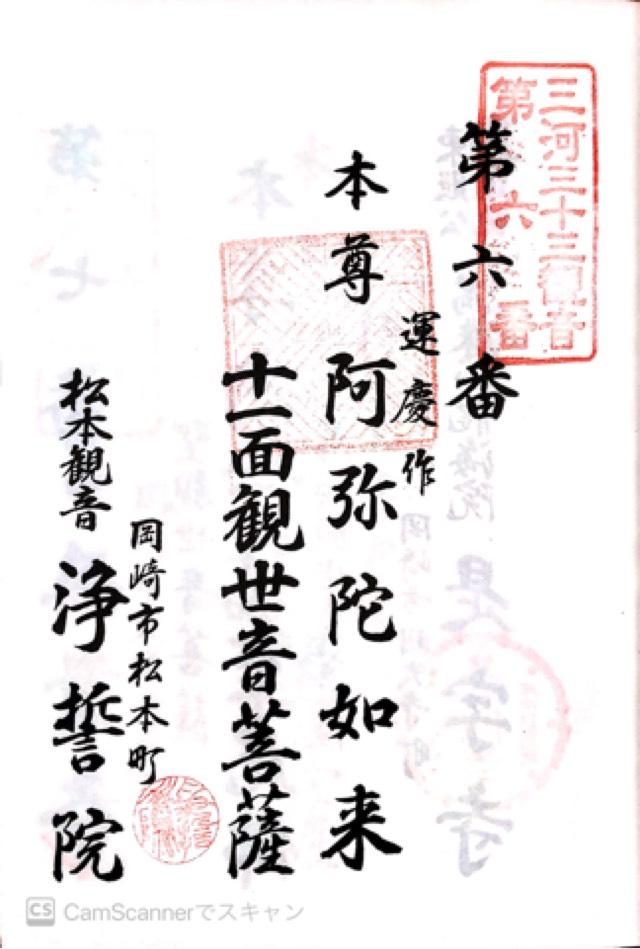 三河三十三観音
第六番
第六番
運慶作
本尊 阿弥陀如来
十一面観世音菩薩
岡崎市松本町
松本観音 浄誓院
CS CamScannerでスキャン